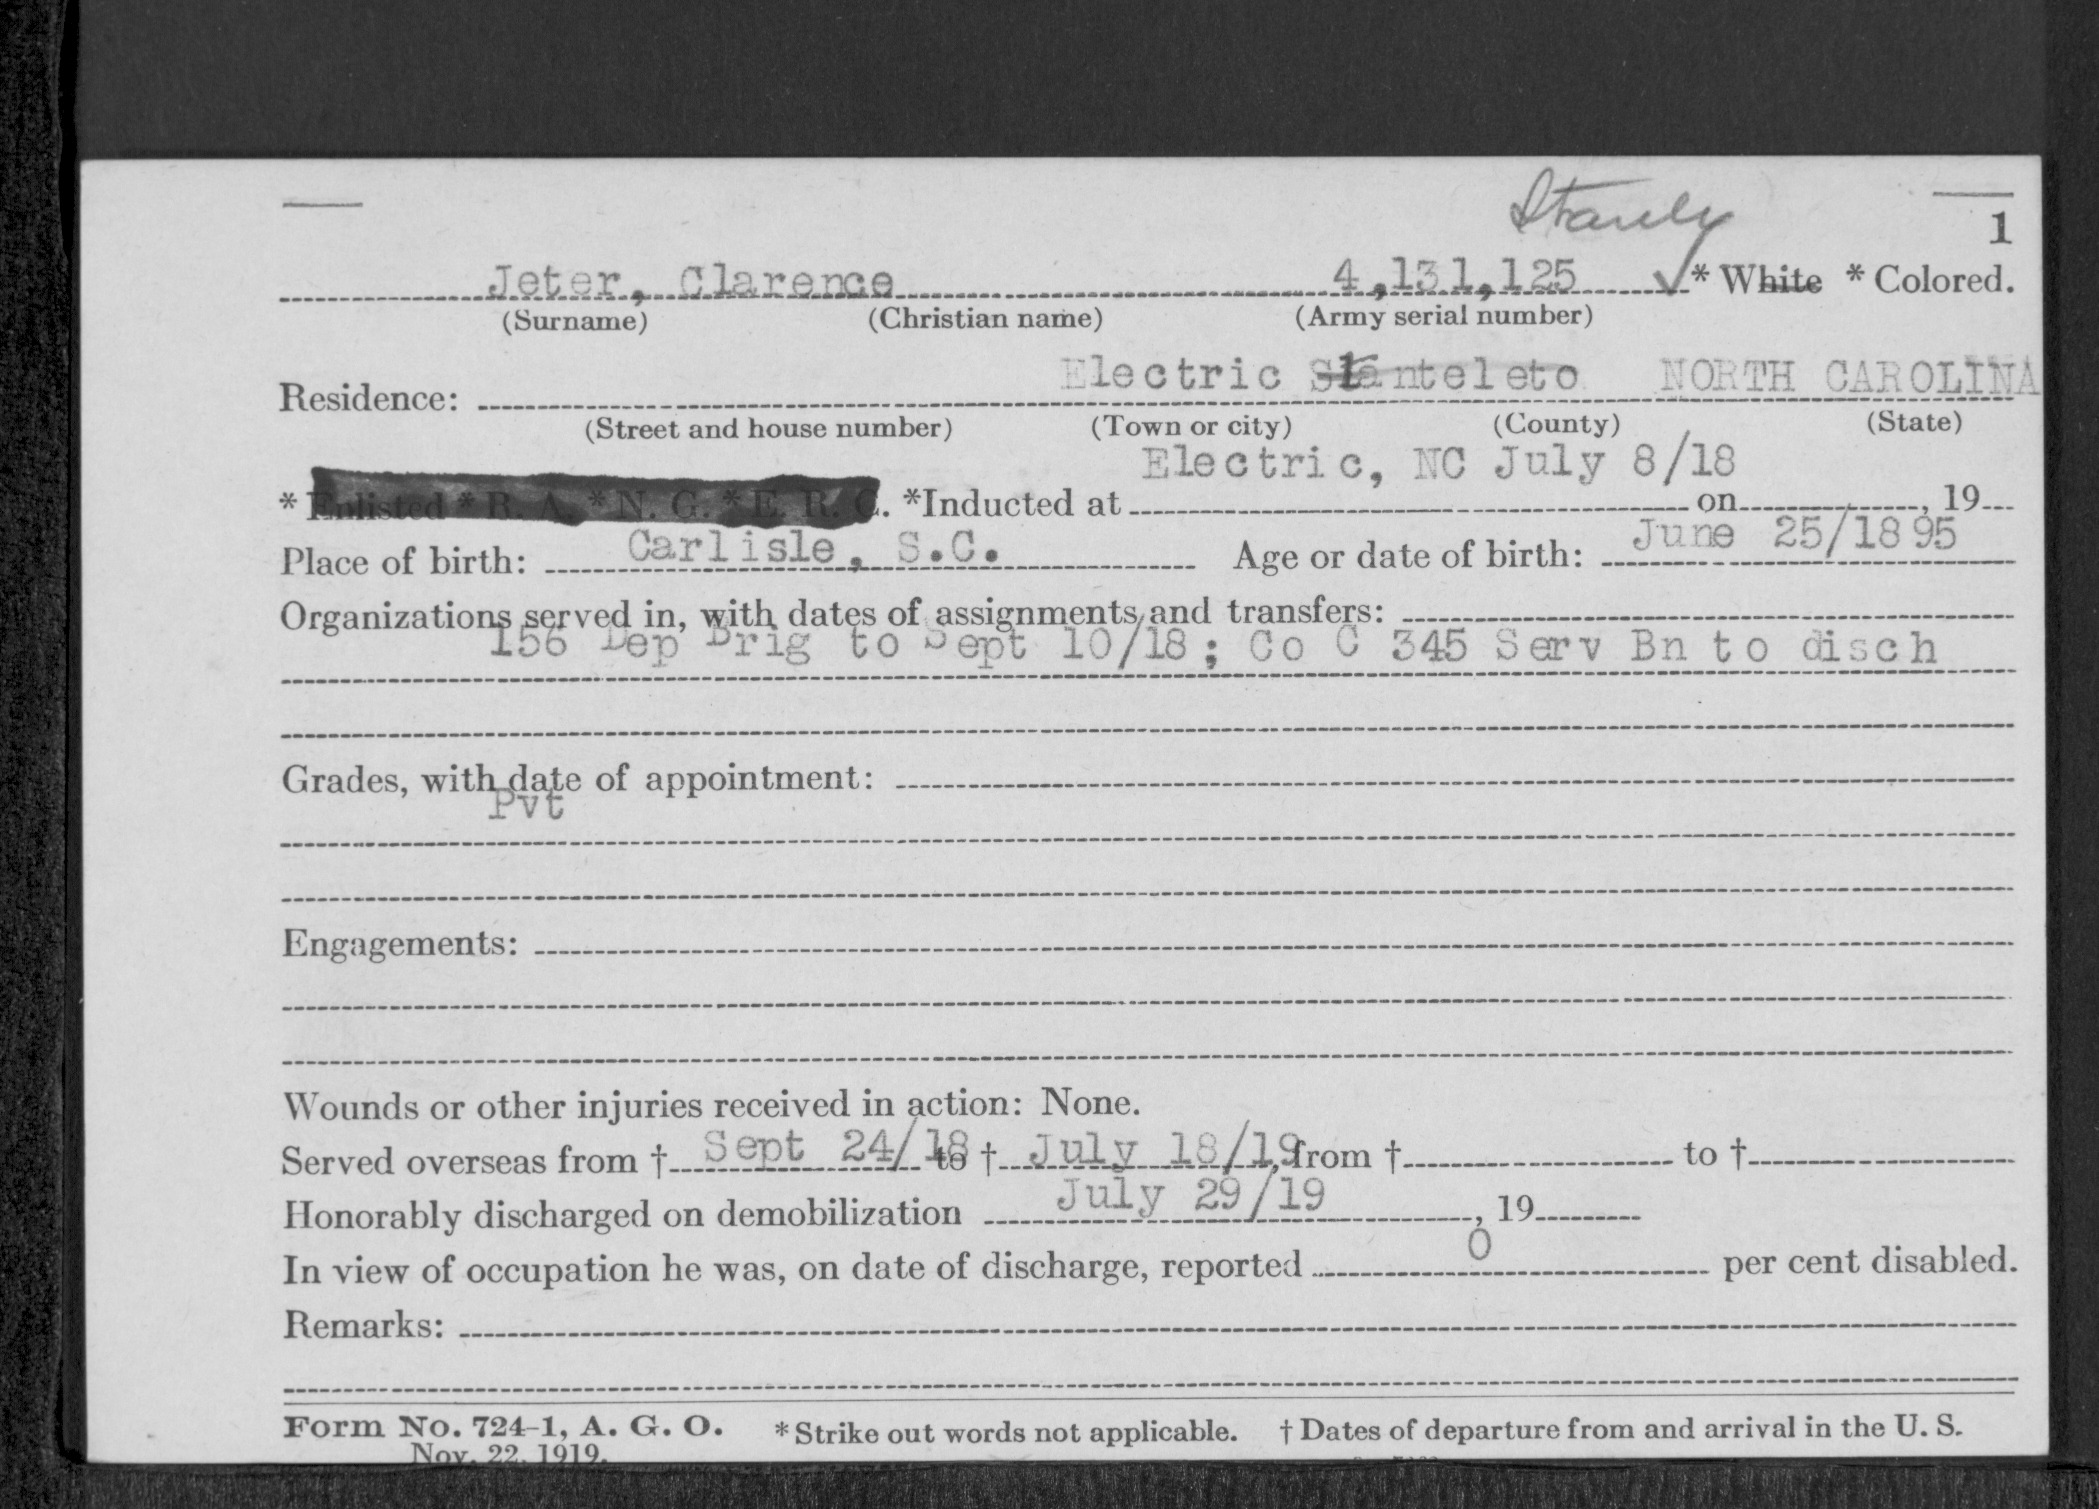 Stanly
1
Jeter, Clarence 4,131,125 * White * Colored.
(Surname) (Christian name) (Army serial number)
Electric NORTH CAROLINA
Residence:
(Street and house number) (Town or city) (County) (State)
Electric, NC July 8/18
* Enlisted * R. A. * N. G. * E. R. C. *Inducted at on , 19
Place of birth: Carlisle, S.C. Age or date of birth: June 25/1895
Organizations served in, with dates of assignments and transfers:
156 Dep Brig to Sept 10/18; Co C 345 Serv Bn to disch
Grades, with date of appointment:
Pvt
Engagements:
Wounds or other injuries received in action: None.
Served overseas from † Sept 24/18 to † July 18/19, from † to †
Honorably discharged on demobilization July 29/19 , 19
In view of occupation he was, on date of discharge, reported 0 per cent disabled.
Remarks:
Form No. 724-1, A. G. O. * Strike out words not applicable. † Dates of departure from and arrival in the U. S.
Nov. 22, 1919.